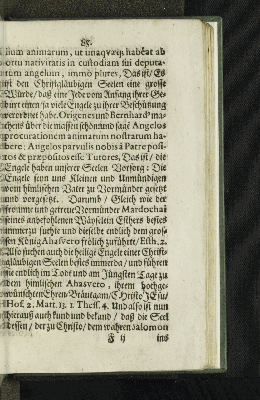 85.
lium animarum, ut unaquæq; habeat ab
ortu nativitatis in custodiam sui deputa-
tum angelum, immò plures, Das ist / Es
ist den Christgläubigen Seelen eine grosse
Würde / daß eine Jede vom Anfang ihrer Ge-
burt einen / ja viele Engel zu ihrer Beschützung
verordnet habe. Origenes und Bernhard9 ma-
chens über die massen schön und sagē Angelos
procurationem animarum nostrarum ha-
bere: Angelos parvulis nobis à Patre posi-
tos & præpositos esse Tutores, Das ist / die
Engele haben unserer Seelen Versorg: Die
Engele seyn uns Kleinen und Unmündigen
vom himlischen Vater zu Vormünder gesetzt
und vorgesetzt. Darumb / Gleich wie der
fromme und getreue Vormünder Mardochai
seines anbefohlnen Wäyselein Esthers bestes
immerzu suchte und dieselbe endlich dem gros-
sen König Ahasvero frölich zuführte / Esth. 2.
Also suchen auch die heilige Engele einer Christ-
gläubigen Seelen bestes immerda / und führen
sie endlich im Tode und am Jüngsten Tage zu
dem himlischen Ahasvero, ihrem hochge-
wünschten Ehren-Bräutgam / Christo Jesu /
Hof. 2. Matt. 13. 1 Thess. 4. Und also ist nun
hierauß auch kund und bekand / daß die Seel
dessen / der zu Christo / dem wahren Salomon
F ij ins